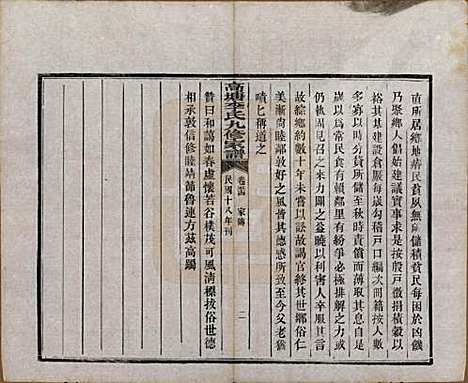 直所居鄉地瘠民貧夙無儲積貧民每困於凶饑
乃聚鄉人倡始建議實事求是按殷戶徵捐積穀以
裕其基建設倉廠每歲勾稽戶口編次冊籍按人數
多寡以時分貸所儲至秋時責而薄取其息行之數
歲以為常民食有賴鄰里有紛爭必極排解之力或
仍執迷不悟者則反覆曉以利害人人卒服其言以
故綜鄉約數十年未嘗以訟故謁官終其世鄉俗仁
美漸尚睦鄰敦好之風皆其德感所致至今父老猶
嘖匕稱道之
贊曰和藹如春虛懷若谷樸茂可風淸標拔俗世德
相承敦信修睦靖節魯連方茲高躅
高塘李氏九修家譜
家傳
民國十八年刊
二